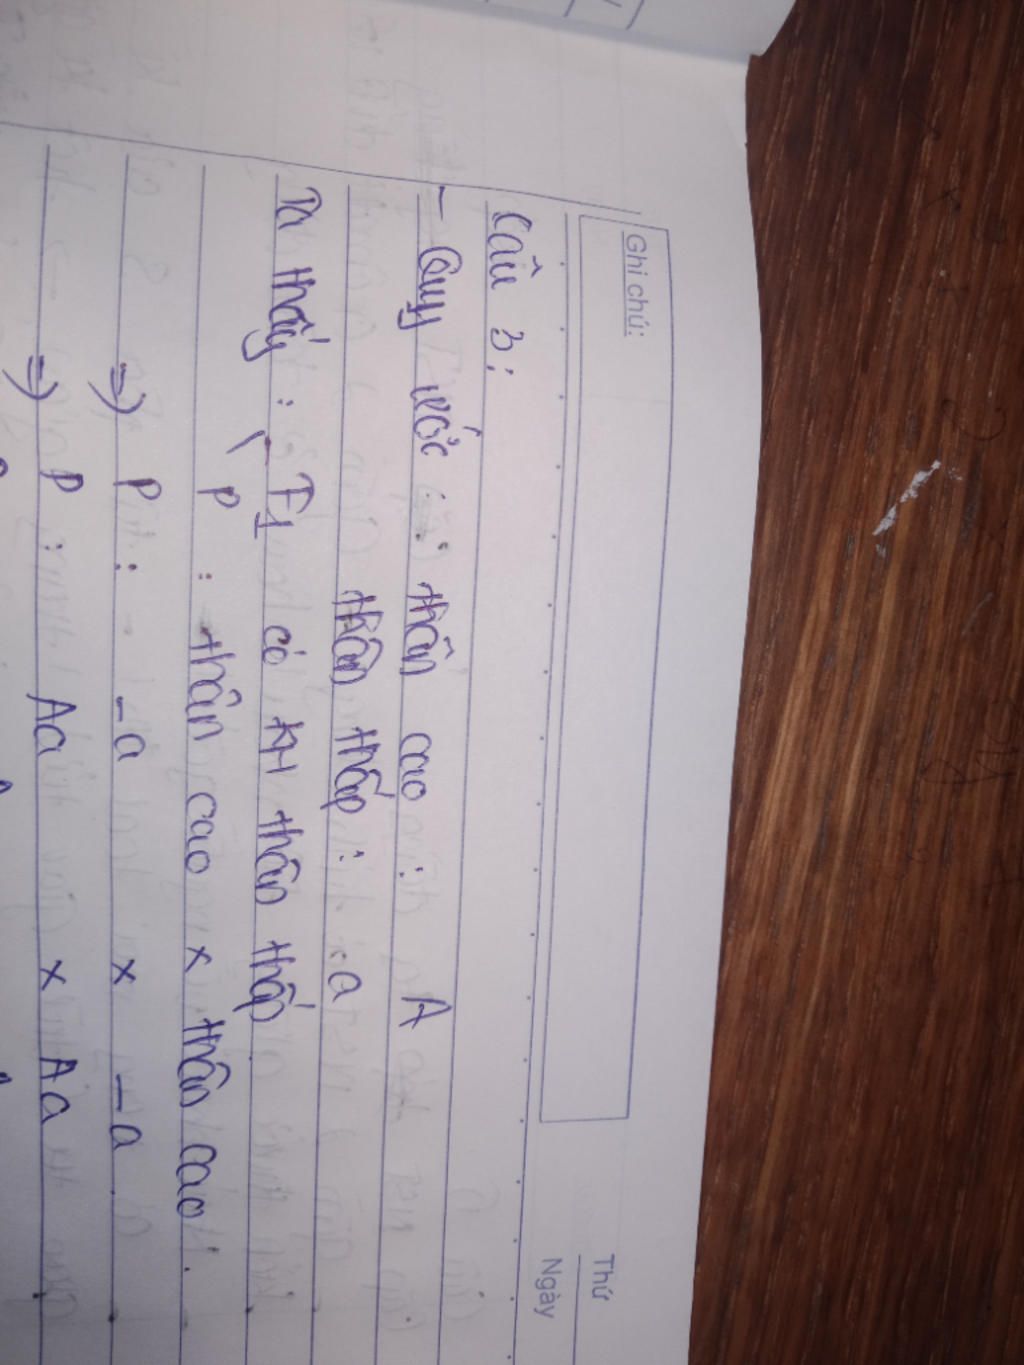 Ghi chú:
Thứ
Ngày
Câu 3:
- Quy ước: thân cao: A
thân thấp: a
Ta thấy: F1 có KH thân thấp
P: thân cao x thân cao.
=> P: _a x _a
=> P: Aa x Aa